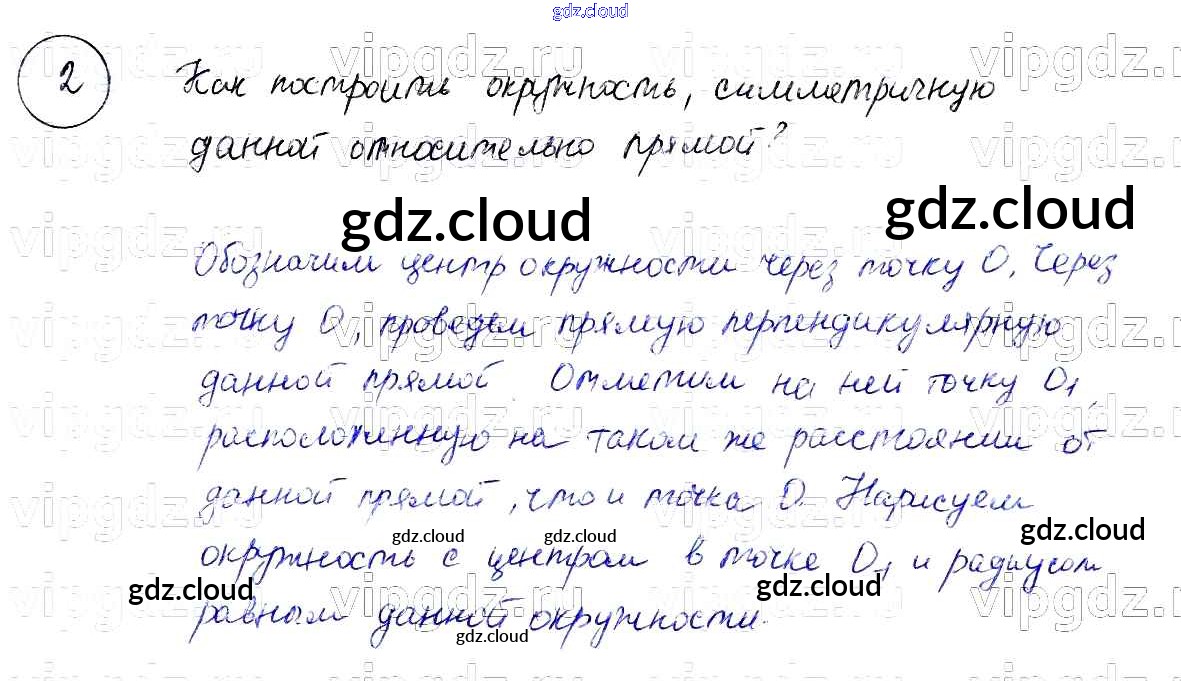 gdz.cloud
2
Как построить окружность, симметричную
данной относительно прямой?
gdz.cloud
gdz.cloud
Обозначим центр окружности через точку О. Через
точку О, проведем прямую перпендикулярную
данной прямой. Отметим на ней точку О1,
расположенную на таком же расстоянии от
данной прямой, что и точка О. Нарисуем
gdz.cloud
gdz.cloud
gdz.cloud
окружность с центром в точке О1 и радиусом
gdz.cloud
gdz.cloud
равным данной окружности.
gdz.cloud
vipgdz.ru vipgdz.ru vipgdz.ru